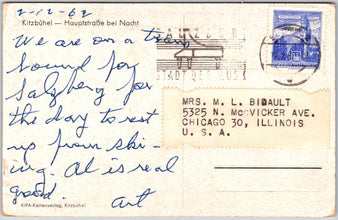 2-12-62
Kitzbühel — Hauptstraße bei Nacht
We are on a train
bound for
Salzberg for
the day to rest
up from ski-
ing. Al is real
good.
Art
SALZBURG
STADT DER MUSIK
MRS. M. L. BIDAULT
5325 N. McVICKER AVE.
CHICAGO 30, ILLINOIS
U. S. A.
KIFA-Kartenverlag, Kitzbühel